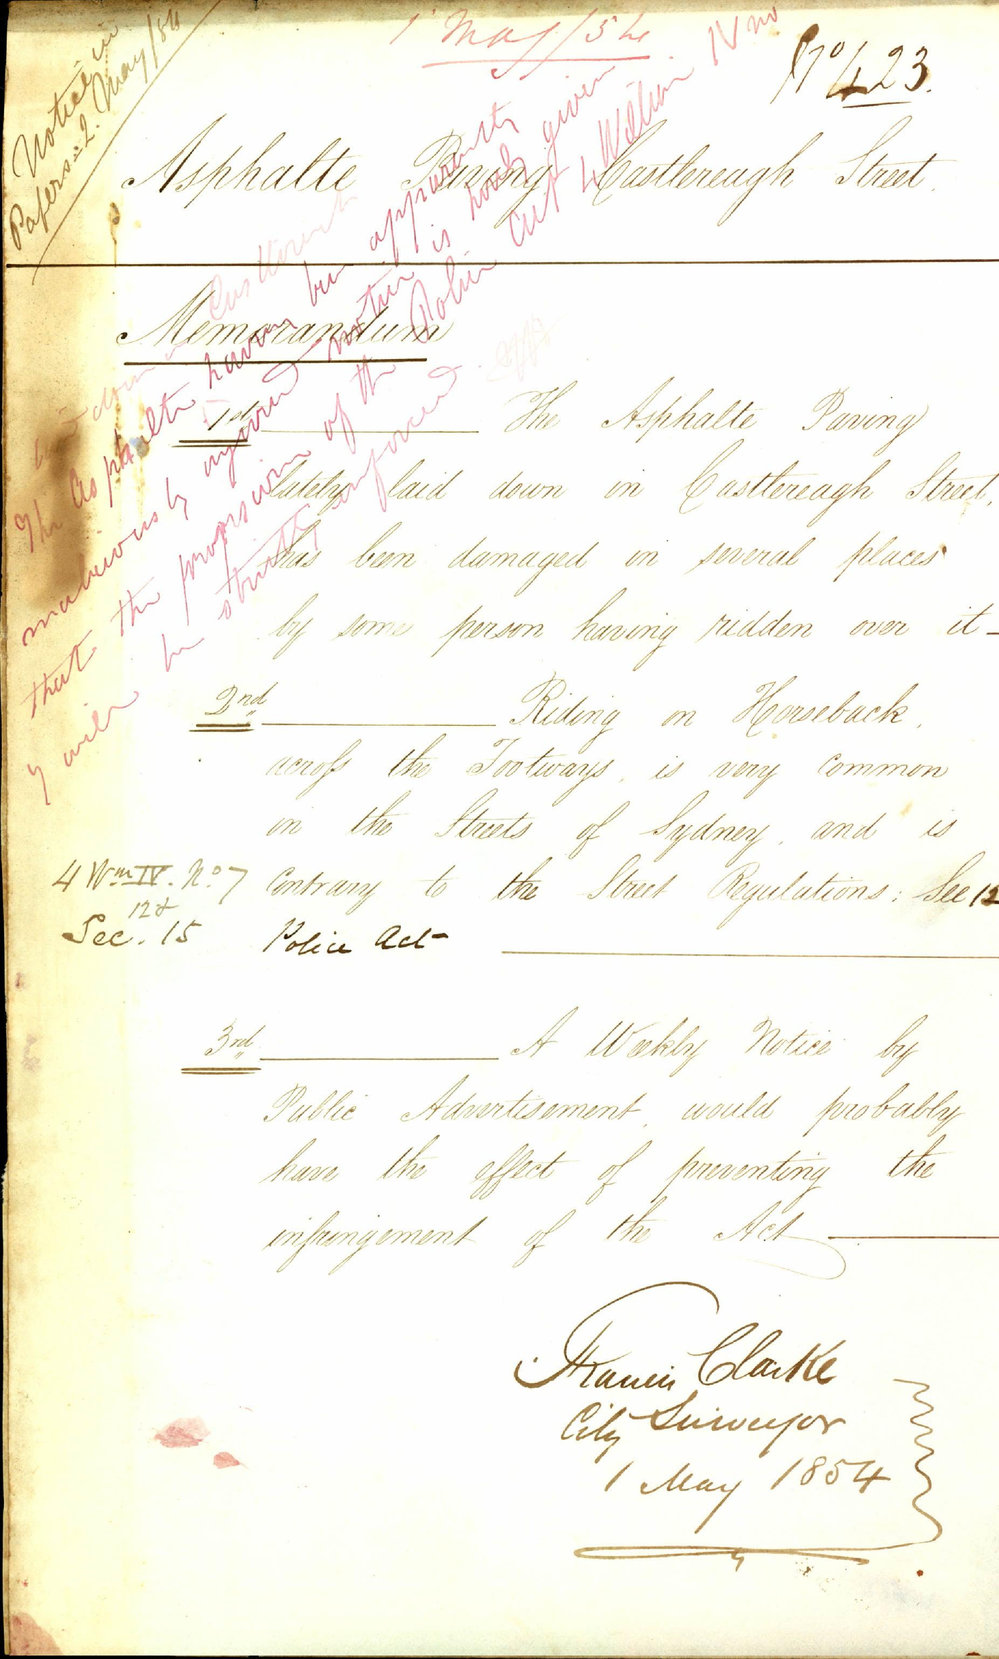 Notice in
Papers 2. May/54
1 May/54
No 423.
Asphalte Paving Castlereagh Street.
Memorandum
1st The Asphalte Paving
lately laid down in Castlereagh Street,
has been damaged in several places
by some person having ridden over it -
2nd Riding on Horseback,
across the Footways, is very common
in the Streets of Sydney, and is
4 Wm IV. No 7 contrary to the Street Regulations; See 12
12 &
Sec. 15 Police Act
3rd A Weekly Notice by
Public Advertisement, would probably
have the effect of preventing the
infringement of the Act
Francis Clarke
City Surveyor
1 May 1854
laid down in Castlereagh
The Asphalte having been apparently
maliciously injured notice is hereby given
that the provisions of the Police Act 4 William IV no
7 will be strictly enforced